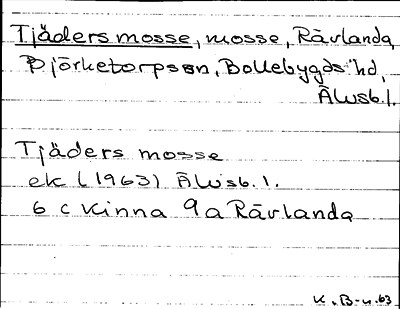 Tjäders mosse, mosse, Rävlanda,
Björketorps sn, Bollebygds hd,
Älvsb. l.
Tjäders mosse
ek (1963) Älvsb. l.
6 c Kinna 9 a Rävlanda
K. B-n. 63